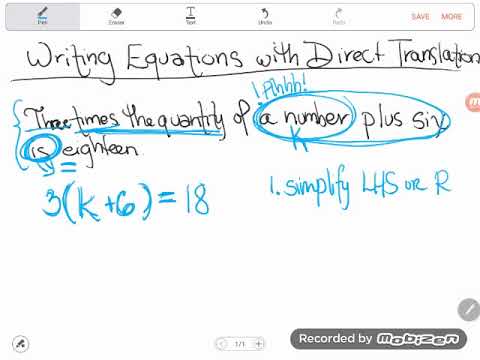 Pen
Eraser
Text
Undo
Redo
SAVE
MORE
Writing Equations with Direct Translation
! Ahhh!
Three times the quantity of a number plus six
K
is eighteen
=
3(K+6)=18
1. simplify LHS or R
1/1
Recorded by
mobizen